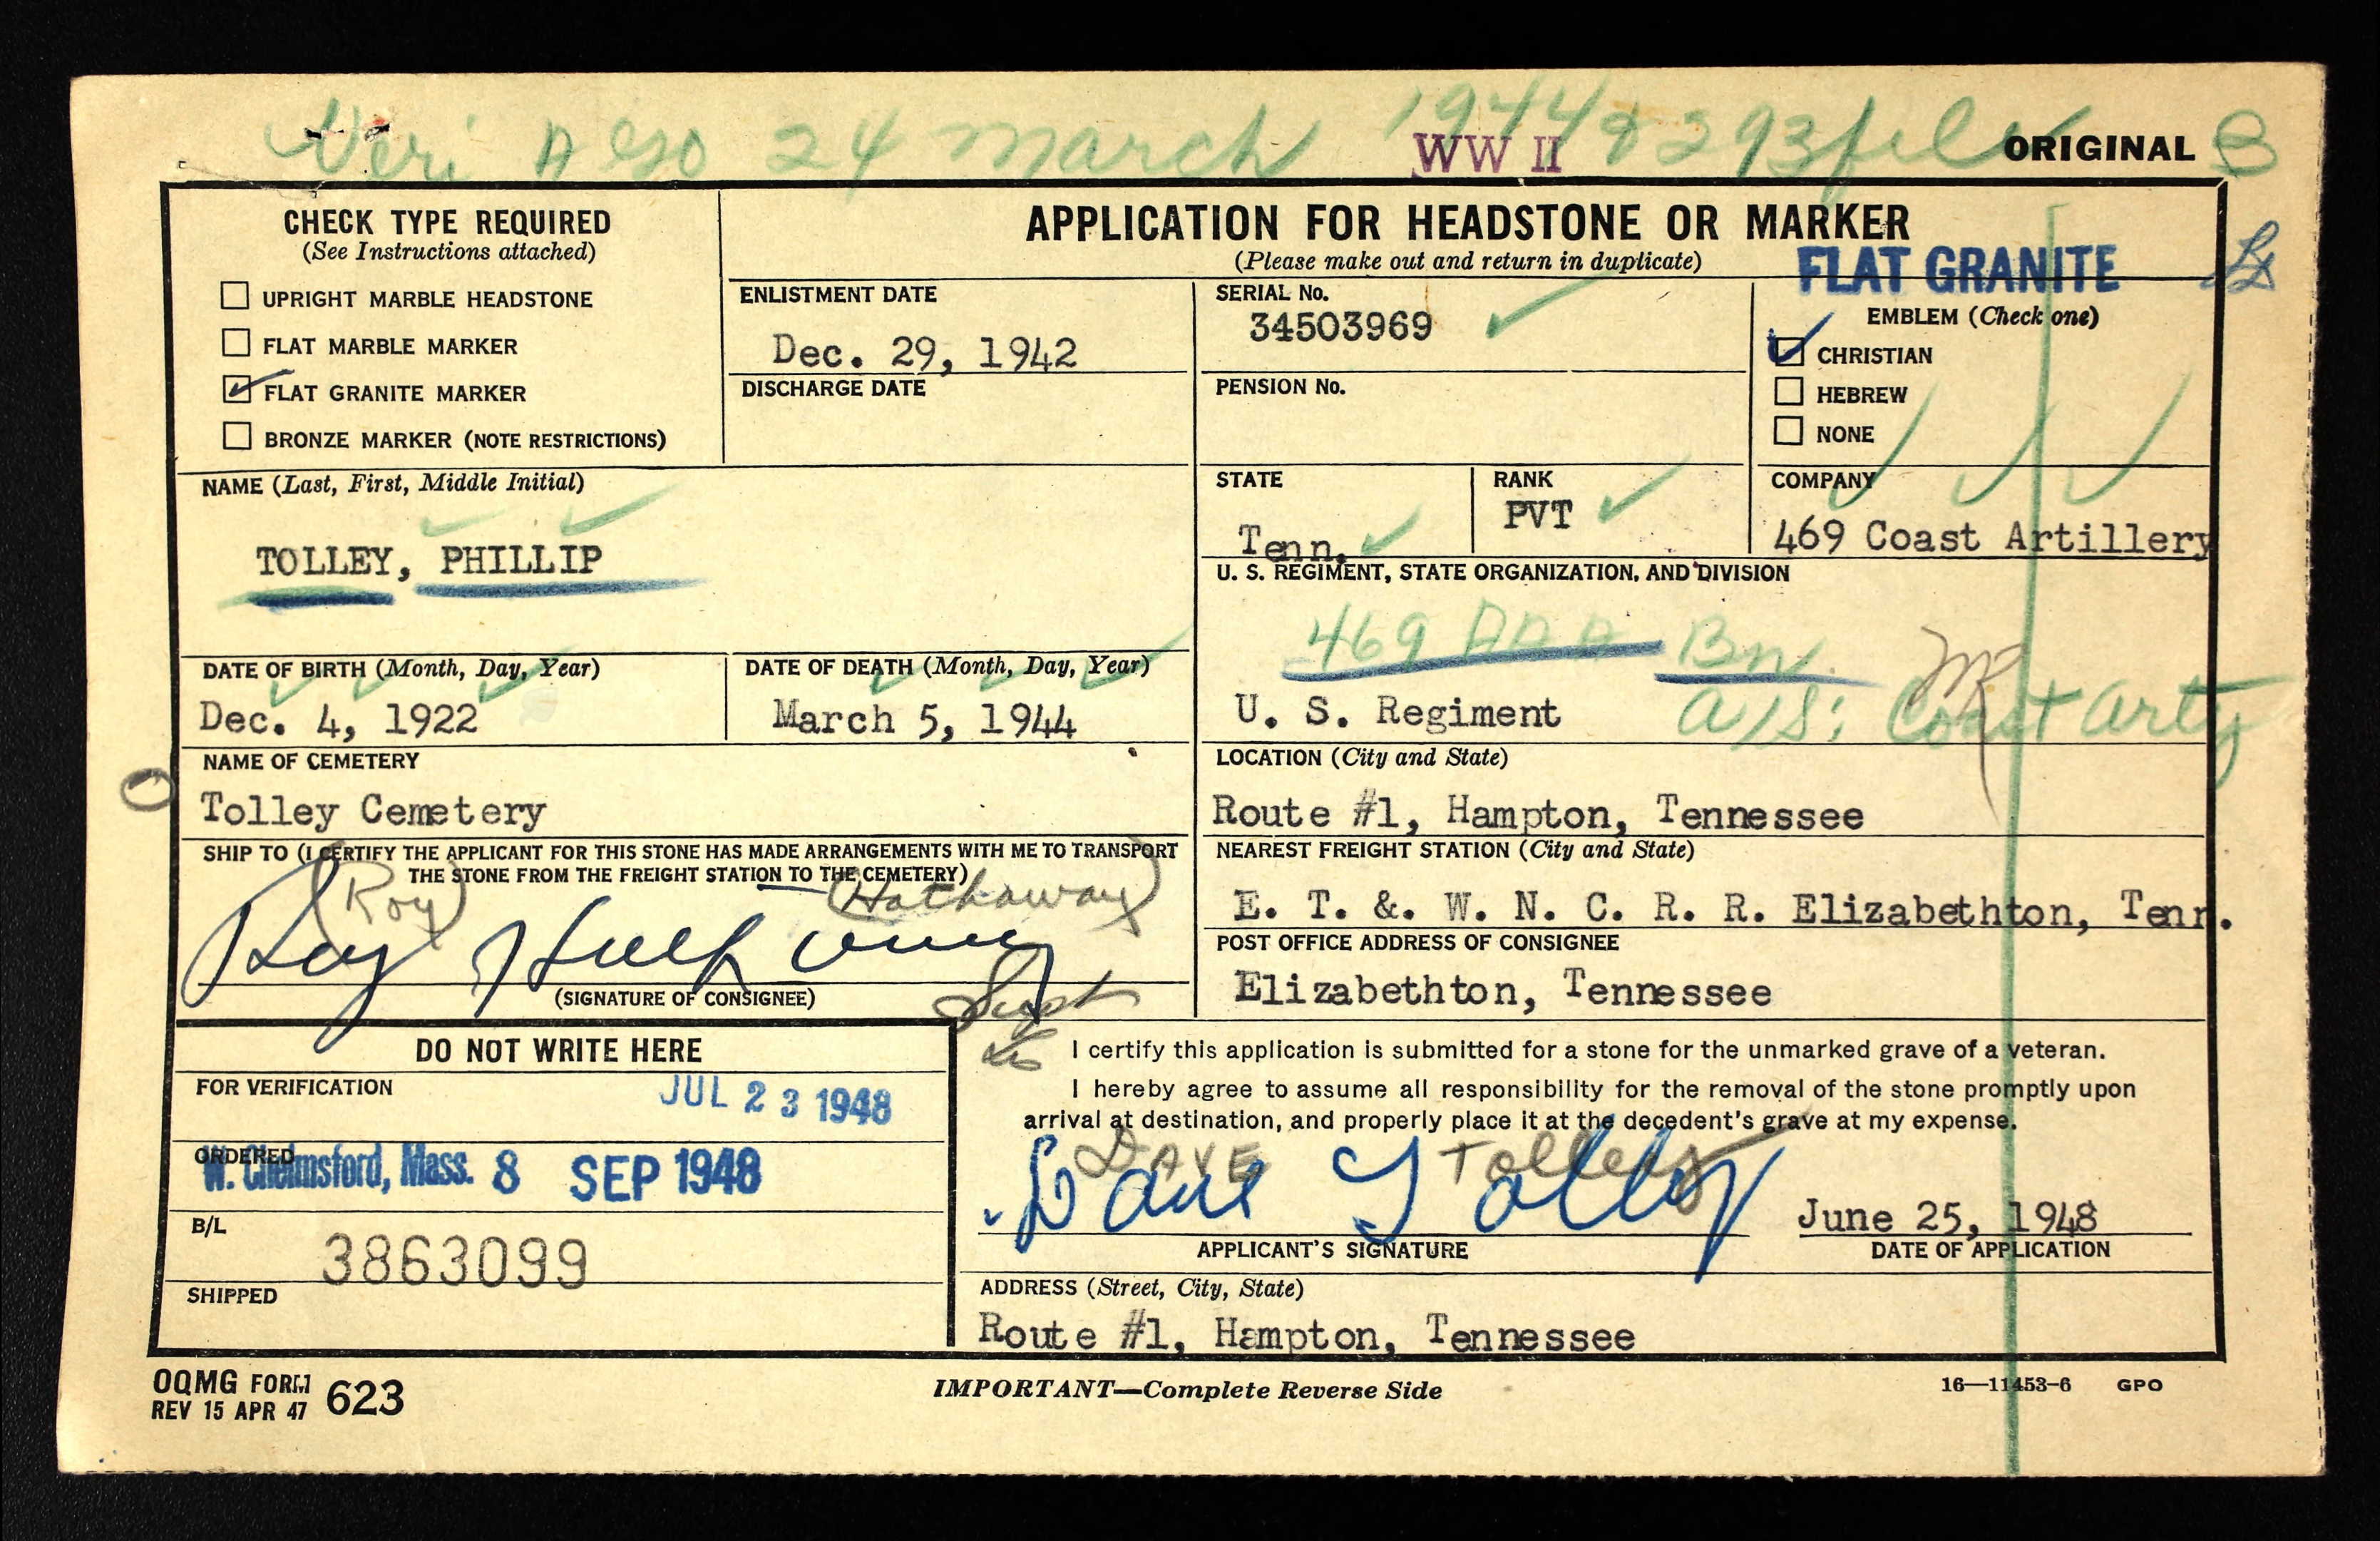 Veri AGO 24 March 1944 & 293 file
WW II
ORIGINAL B
CHECK TYPE REQUIRED
(See Instructions attached)
UPRIGHT MARBLE HEADSTONE
FLAT MARBLE MARKER
FLAT GRANITE MARKER
BRONZE MARKER (NOTE RESTRICTIONS)
APPLICATION FOR HEADSTONE OR MARKER
(Please make out and return in duplicate)
FLAT GRANITE
ENLISTMENT DATE
Dec. 29, 1942
DISCHARGE DATE
SERIAL No.
34503969
PENSION No.
EMBLEM (Check one)
CHRISTIAN
HEBREW
NONE
NAME (Last, First, Middle Initial)
TOLLEY, PHILLIP
STATE
Tenn.
RANK
PVT
COMPANY
469 Coast Artillery
U. S. REGIMENT, STATE ORGANIZATION, AND DIVISION
469 AAA Bn
U. S. Regiment
A/S: Coast Arty
DATE OF BIRTH (Month, Day, Year)
Dec. 4, 1922
DATE OF DEATH (Month, Day, Year)
March 5, 1944
NAME OF CEMETERY
Tolley Cemetery
LOCATION (City and State)
Route #1, Hampton, Tennessee
SHIP TO (I CERTIFY THE APPLICANT FOR THIS STONE HAS MADE ARRANGEMENTS WITH ME TO TRANSPORT
THE STONE FROM THE FREIGHT STATION TO THE CEMETERY)
(Roy) (Hathaway)
Roy Hathaway
(SIGNATURE OF CONSIGNEE)
Supt
NEAREST FREIGHT STATION (City and State)
E. T. &. W. N. C. R. R. Elizabethton, Tenn.
POST OFFICE ADDRESS OF CONSIGNEE
Elizabethton, Tennessee
DO NOT WRITE HERE
FOR VERIFICATION
JUL 23 1948
ORDERED
W. Chelmsford, Mass. 8 SEP 1948
B/L
3863099
SHIPPED
I certify this application is submitted for a stone for the unmarked grave of a veteran.
I hereby agree to assume all responsibility for the removal of the stone promptly upon
arrival at destination, and properly place it at the decedent's grave at my expense.
DAVE Tolley
Dave Tolley
APPLICANT'S SIGNATURE
June 25, 1948
DATE OF APPLICATION
ADDRESS (Street, City, State)
Route #1, Hampton, Tennessee
OQMG FORM 623
REV 15 APR 47
IMPORTANT—Complete Reverse Side
16—11453-6 GPO